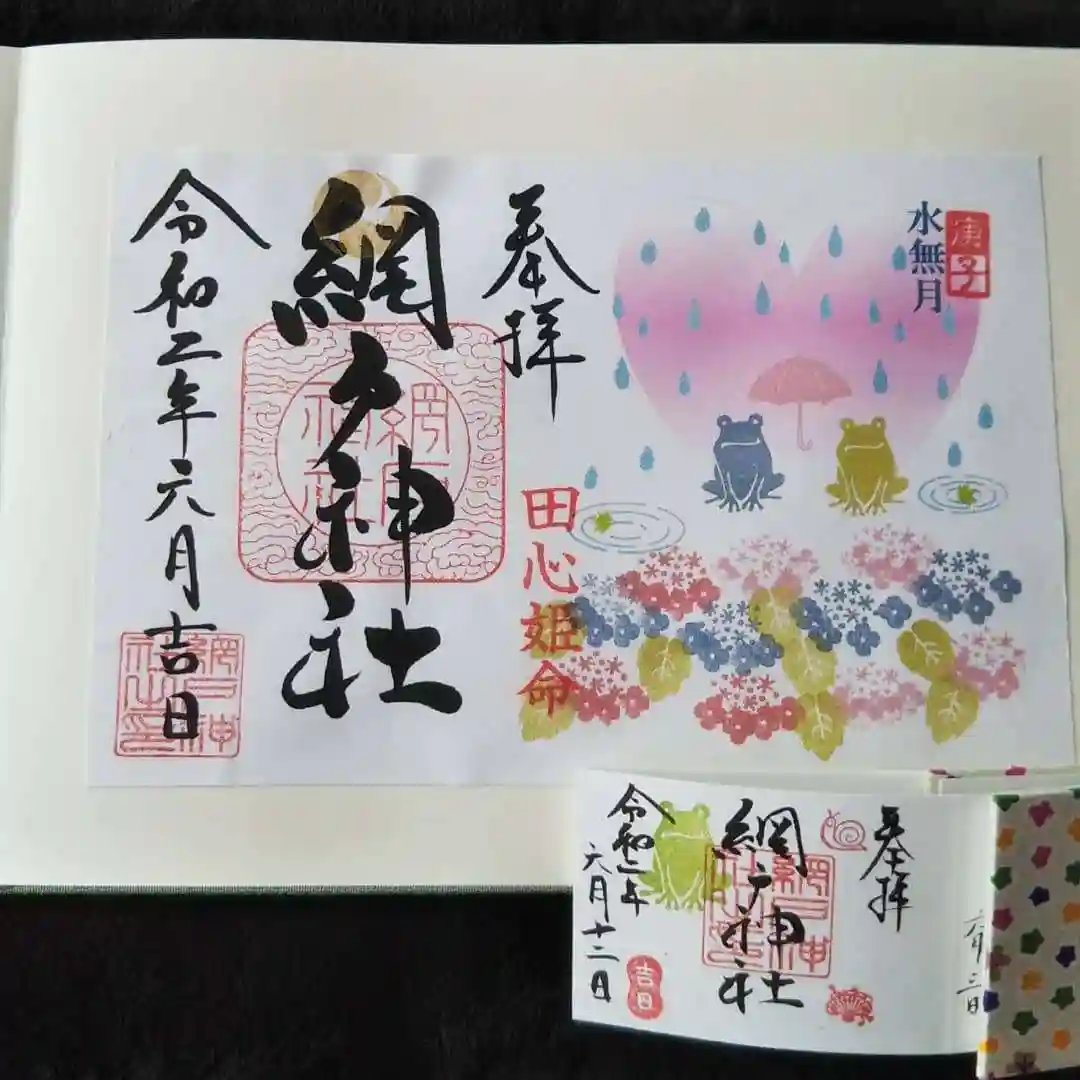 水無月
庚子
奉拝
田心姫命
網戸神社
網戸神社
令和二年六月吉日
網戸神社之印
奉拝
網戸神社
網戸神社之印
令和二年
六月十二日
吉日